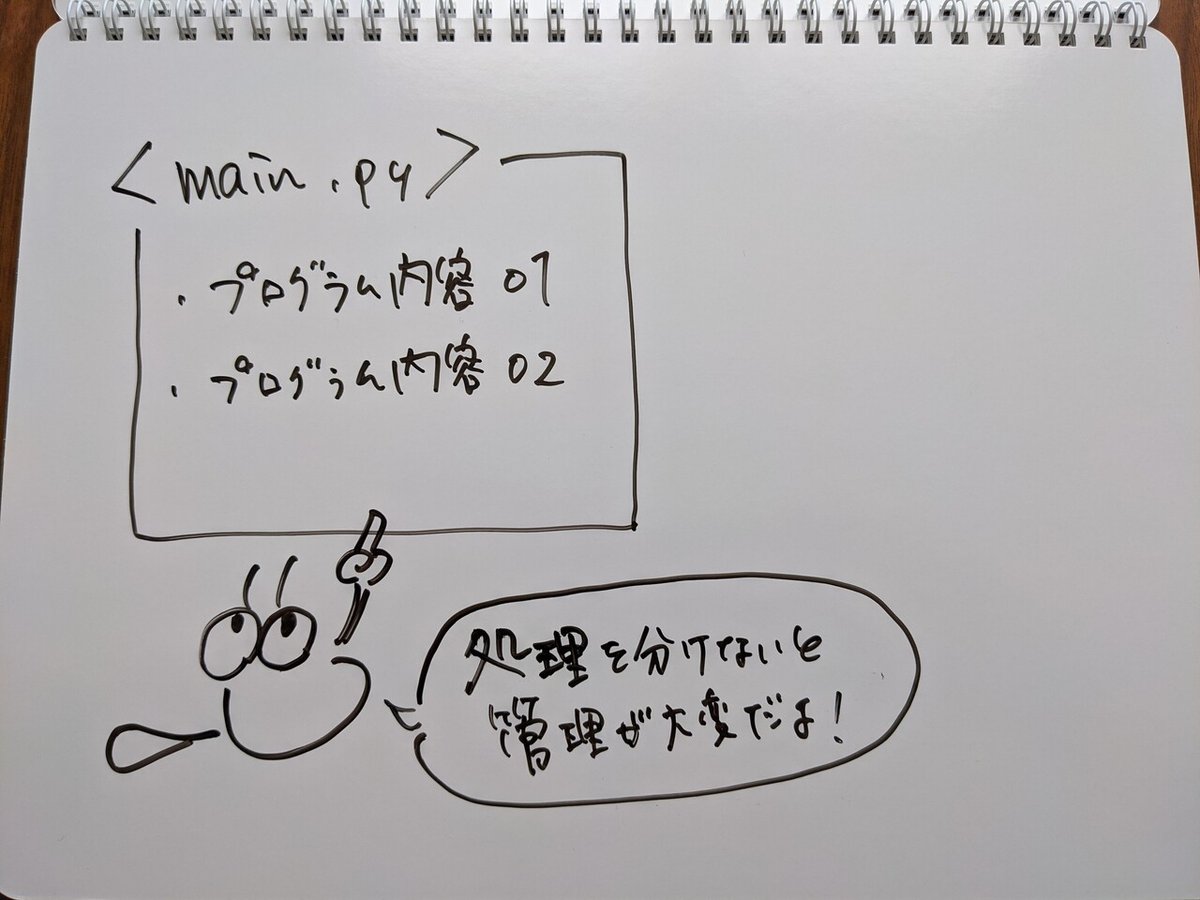 <main.py>
・プログラム内容 01
・プログラム内容 02
処理を分けないと
管理が大変だよ!